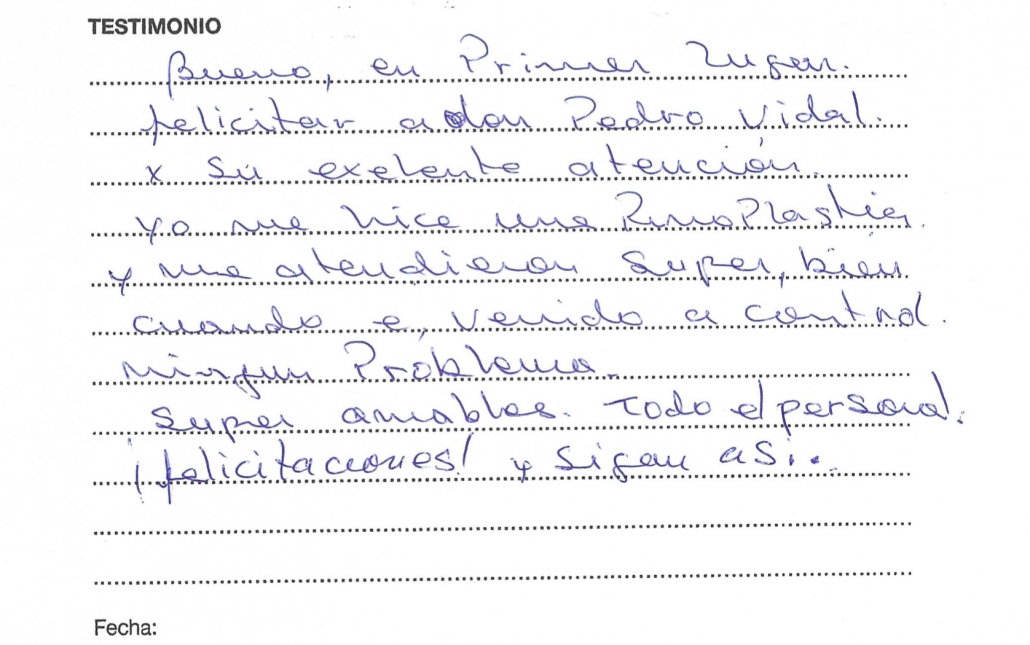 TESTIMONIO
Bueno, en Primer Lugar.
felicitar a don Pedro Vidal.
x su exelente atención.
Yo me hice una RinoPlastia,
y me atendieron super, bien
cuando e, venido a control.
ningun Problema.
Super amables. Todo el personal.
¡felicitaciones! y sigan asi..
Fecha: